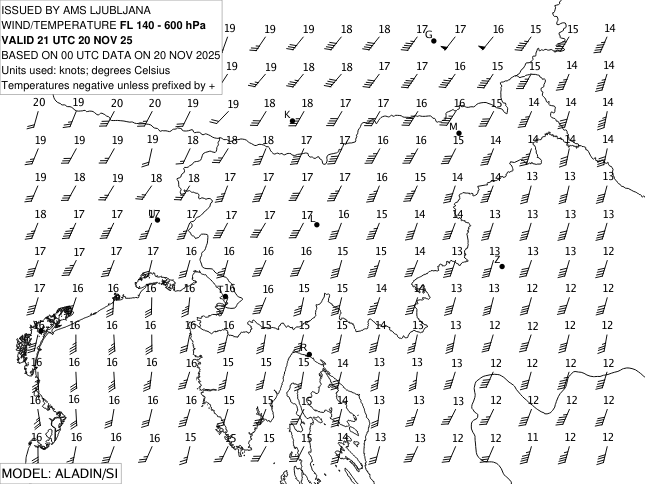 ISSUED BY AMS LJUBLJANA
WIND/TEMPERATURE FL 140 - 600 hPa
VALID 21 UTC 20 NOV 25
BASED ON 00 UTC DATA ON 20 NOV 2025
Units used: knots; degrees Celsius
Temperatures negative unless prefixed by +
19 19 18 18 18 17 17 16 15 15 14
G
19 19 18 18 17 17 16 16 15 14 14
20 19 20 20 19 19 18 18 17 17 16 16 15 14 14 14
K
M
19 19 19 19 18 18 18 17 17 16 16 15 14 14 14 14
19 18 19 18 18 17 17 17 17 16 15 14 14 13 13 13
18 17 17 17 17 17 17 17 16 15 14 14 13 13 13 13
L
17 17 17 17 16 16 16 16 15 15 14 13 13 13 13 12
Z
17 16 16 16 16 16 16 15 15 14 14 13 13 12 12 12
T
16 16 16 16 16 16 15 15 15 14 13 13 12 12 12 12
R
16 16 16 16 16 15 15 15 14 13 13 13 12 12 12 12
16 16 16 16 16 15 15 15 14 13 13 13 12 12 12 12
16 16 16 16 15 15 15 15 14 13 13 12 12 11 12 12
MODEL: ALADIN/SI